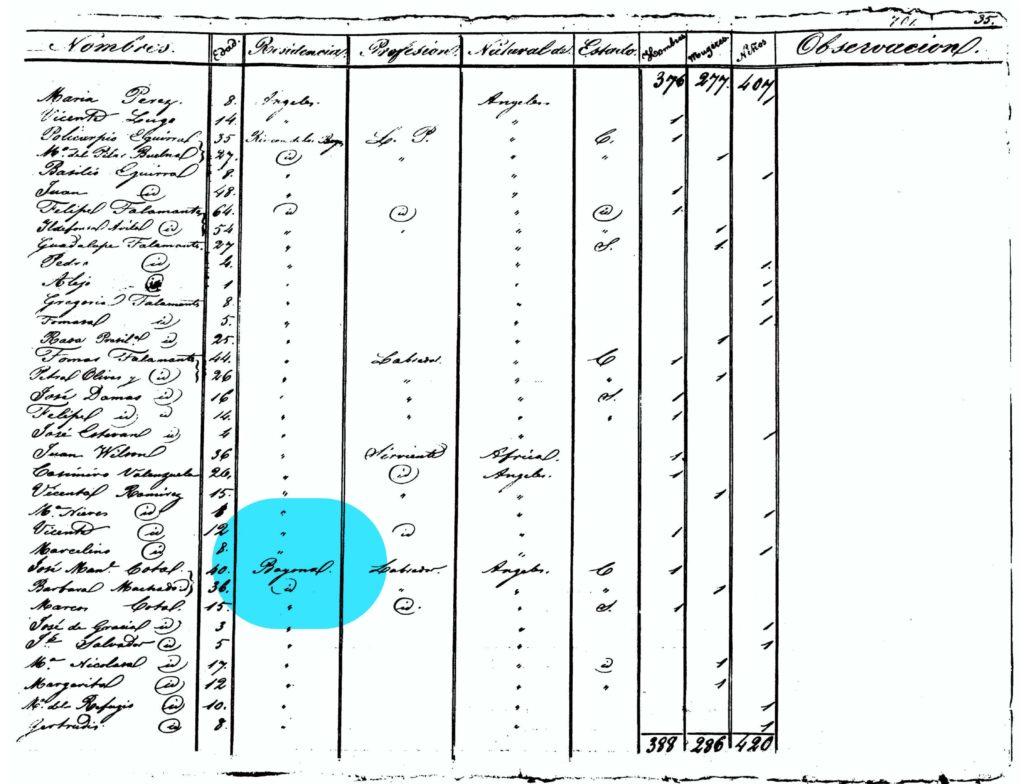 701. 35.
Nombres. Edad Residencia. Profesion. Natural de. Estado. Hombres Mugeres Niños Observacion.
376 277. 407
Maria Perez. 8. Angeles. Angeles.
Vicente Lugo 14. " " 1
Policarpio Eguirral 35 Rincon de los L. P. " C. 1
Mª. del Pilar 27. id " " " 1
Basilio Eguirral 8. " " 1
Juan id 48. " " 1
Felipe Talamante 64. id id " id 1
Ildefonsa id 54 " " " " 1
Guadalupe Talamante. 27 " " S. 1
Pedro id 4. " " 1
Alejo id 1 " " 1
Gregorio Talamante 8. " " 1
Tomasa id 5. " " 1
Rosa id 25. " " 1
Tomas Talamante 44. " Labrador. " C 1
Petra Olivas y id 26 " " " " 1
José Damas id 16 " " " S. 1
Felipe id id 14. " " " " 1
José Estevan id 4 " " 1
Juan Wilson 36 " Sirviente Africa. 1
Casimiro Valenzuela 26. " id Angeles. 1
Vicenta Ramirez 15. " " " 1
Mª. Nieves id 1 " " 1
Vicente id 12 " id " 1
Marcelino id 8. " " 1
José Manl. Cota 40. Labrador. Angeles. C 1
Barbara Machado 36. id " " " 1
Marcos Cota. 15. " id. " S. 1
José de Gracia id 3 " " 1
Salvador id 5 " " 1
Mª. Nicolasa id 17. " " id 1
Margarita id 12 " " " 1
Mª. del Refugio id 10. " " 1
Gertrudis id 8. " " 1
388 286 420